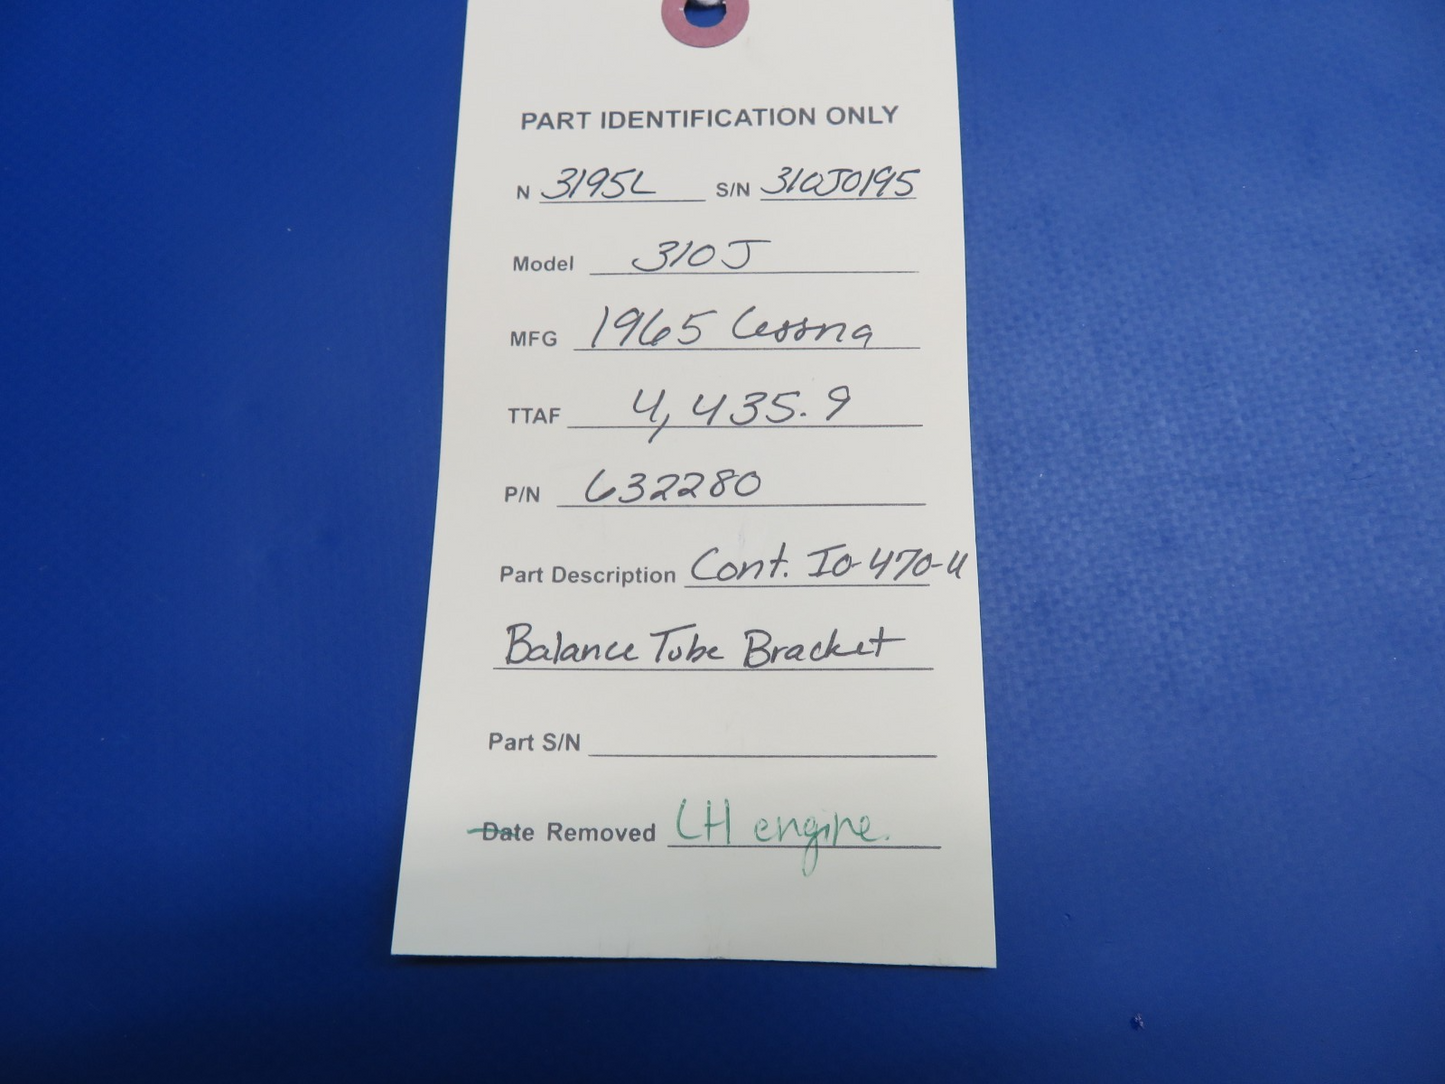 PART IDENTIFICATION ONLY
N 3195L S/N 310J0195
Model 310J
MFG 1965 Cessna
TTAF 4,435.9
P/N 632280
Part Description Cont. IO-470-U
Balance Tube Bracket
Part S/N
Date Removed LH engine.